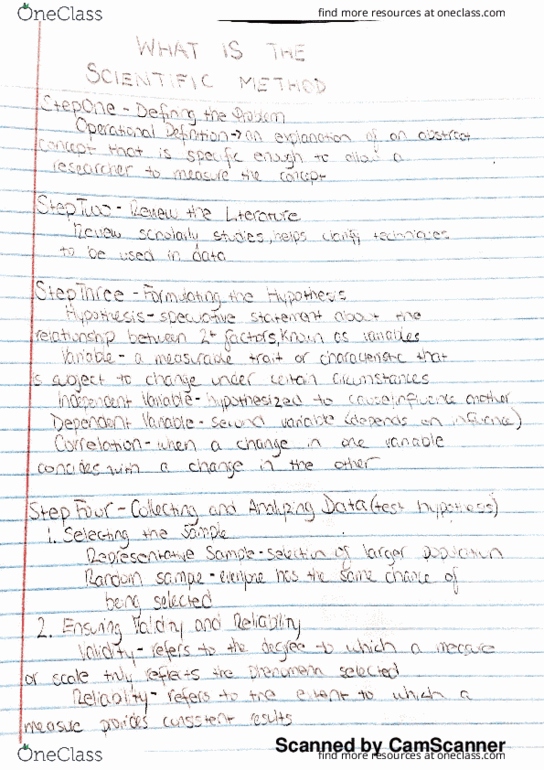 OneClass
find more resources at oneclass.com
WHAT IS THE
SCIENTIFIC METHOD
Step One - Defining the Problem
Operational Definition → an explanation of an abstract
concept that is specific enough to allow a
researcher to measure the concept
Step Two - Review the Literature
Review scholarly studies, helps clarify techniques
to be used in data
Step Three - Formulating the Hypothesis
Hypothesis - speculative statement about the
relationship between 2+ factors, known as variables
Variable - a measurable trait or characteristic that
is subject to change under certain circumstances
Independent Variable - hypothesized to cause/influence another
Dependent Variable - second variable (depends on influence)
Correlation - when a change in one variable
concides with a change in the other
Step Four - Collecting and Analyzing Data (test hypothesis)
1. Selecting the Sample
Representative Sample - selection of larger population
Random sample - everyone has the same chance of
being selected
2. Ensuring Validity and Reliability
Validity - refers to the degree to which a measure
or scale truly reflects the phenomena selected
Reliability - refers to the extent to which a
measure provides consistent results
OneClass
Scanned by CamScanner
find more resources at oneclass.com